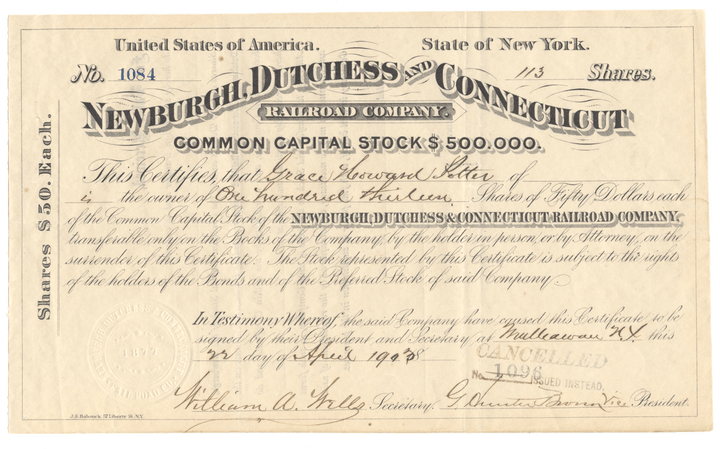 United States of America. State of New York.
No. 1084 113 Shares.
NEWBURGH, DUTCHESS AND CONNECTICUT
RAILROAD COMPANY.
COMMON CAPITAL STOCK $500.000.
Shares $50. Each.
This Certifies, that Grace Howard Potter of
is the owner of One hundred thirteen Shares of Fifty Dollars each
of the Common Capital Stock of the NEWBURGH, DUTCHESS & CONNECTICUT RAILROAD COMPANY,
transferable only on the Books of the Company, by the holder in person, or by Attorney, on the
surrender of this Certificate. The Stock represented by this Certificate is subject to the rights
of the holders of the Bonds and of the Preferred Stock of said Company.
In Testimony Whereof, the said Company have caused this Certificate to be
signed by their President and Secretary at Matteawan N.Y. this
22 day of April 190
CANCELLED
No. 1096 ISSUED INSTEAD.
1877
William A. Wells Secretary. G. Hunter Brown Vice President.